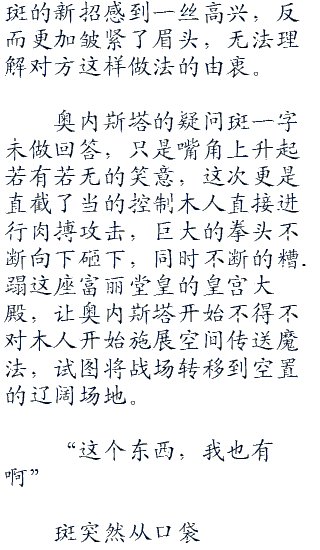 斑的新招感到一丝高兴，反
而更加皱紧了眉头，无法理
解对方这样做法的由衷。
奥内斯塔的疑问斑一字
未做回答，只是嘴角上升起
若有若无的笑意，这次更是
直截了当的控制木人直接进
行肉搏攻击，巨大的拳头不
断向下砸下，同时不断的糟.
蹋这座富丽堂皇的皇宫大
殿，让奥内斯塔开始不得不
对木人开始施展空间传送魔
法，试图将战场转移到空置
的辽阔场地。
“这个东西，我也有
啊”
斑突然从口袋